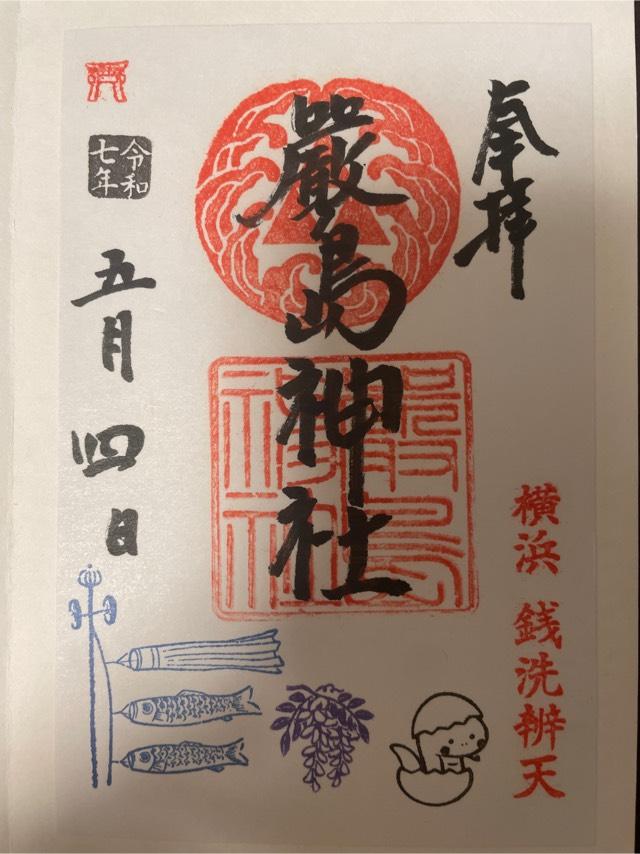 奉拝
横浜 銭洗辨天
嚴島神社
嚴島
神社
令和
七年
五月四日